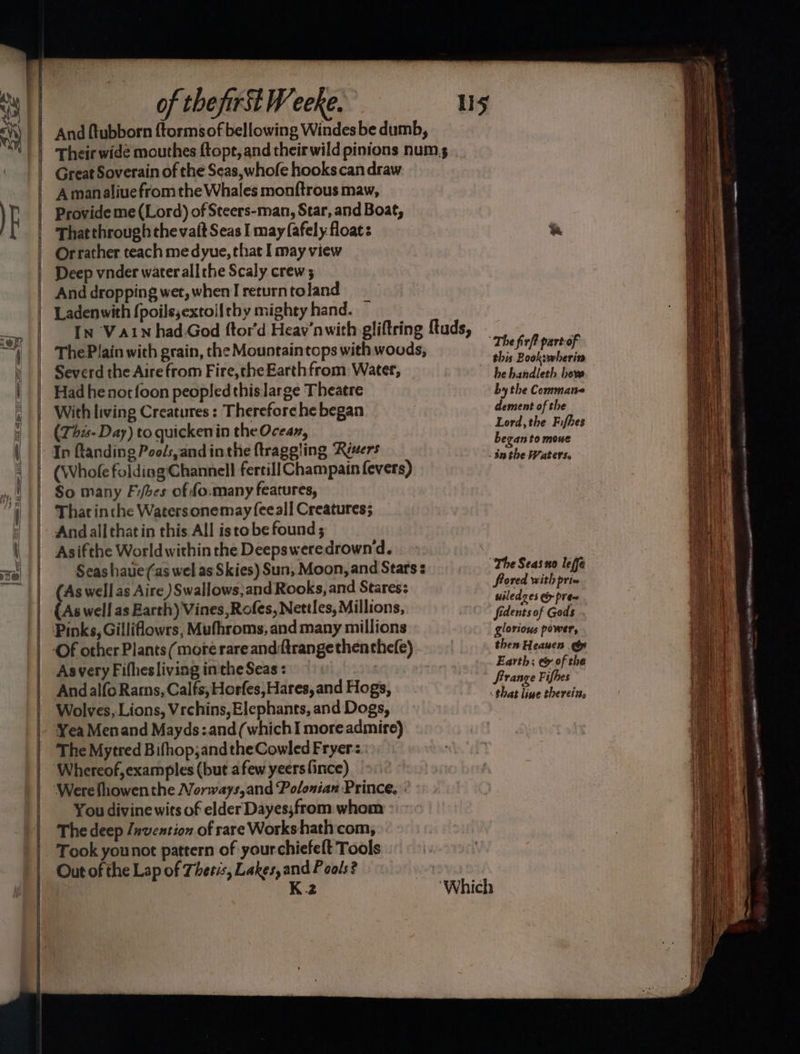 of the firſt Weeke. 115
And ſtubborn ſtorms of bellowing Windes be dumb,
Their wide mouthes ſtopt, and their wild pinions num;
Great Soverain of the Seas, whoſe hooks can draw
A man aliue from the Whales monſtrous maw,
Provide me (Lord) of Steers-man, Star, and Boat,
That through the vaſt Seas I may ſafely float:
Or rather teach me dyue, that I may view
Deep vnder water all the Scaly crew;
And dropping wet, when I return to land
Laden with ſpoils, extoil thy mighty hand.
In Vain had God ſtor'd Heav'n with gliſtring ſtuds,
The Plain with grain, the Mountain tops with woods,
Severd the Aire from Fire, the Earth from Water,
Had he not ſoon peopled this large Theatre
With living Creatures: Therefore he began
(This-Day) to quicken in the Ocean,
In ſtanding Pools, and in the ſtraggling Riuers
(Whoſe folding Channell fertill Champain ſevers)
So many Fiſhes of ſo many features,
That in the Waters one may ſee all Creatures;
And all that in this All is to be found;
As if the World within the Deeps were drown'd.
Seas haue (as wel as Skies) Sun, Moon, and Stars:
(As well as Aire) Swallows, and Rooks, and Stares:
(As well as Earth) Vines, Roſes, Nettles, Millions,
Pinks, Gilliflowrs, Muſhroms, and many millions
Of other Plants (more rare and ſtrange then theſe)
As very Fiſhes living in the Seas:
And alſo Rams, Calfs, Horſes, Hares, and Hogs,
Wolves, Lions, Vrchins, Elephants, and Dogs,
Yea Men and Mayds: and (which I more admire)
The Mytred Biſhop; and the Cowled Fryer:
Whereof, examples (but a few yeers ſince)
Were ſhowen the Norways, and Polonian Prince.
You divine wits of elder Dayes, from whom
The deep Invention of rare Works hath com,
Took you not pattern of your chiefeſt Tools
Out of the Lap of Thetis, Lakes, and Pools?
K 2 Which
The firſt part of
this Book: wherin
he handleth how
by the Comman-
dement of the
Lord, the Fiſhes
began to moue
in the Waters.
The Seas no leſſe
ſtored with pri-
uiledges & pre-
ſidents of Gods
glorious power,
then Heauen &
Earth: & of the
ſtrange Fiſhes
that liue therein.